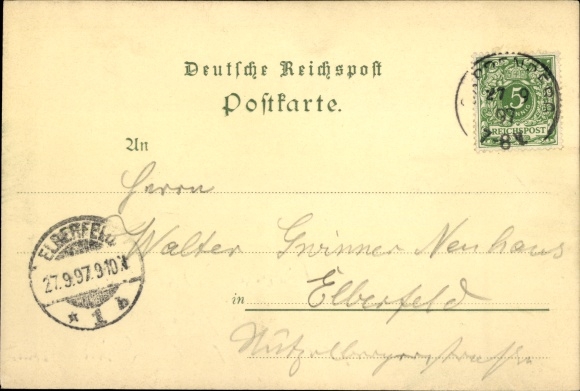 Deutsche Reichspost
Postkarte.
27 9
97
7-8V.
5
REICHSPOST
An
Herrn
Walter Gwinner Neuhaus
ELBERFELD
27.9.97.9-10.V
* 1 b
in Elberfeld